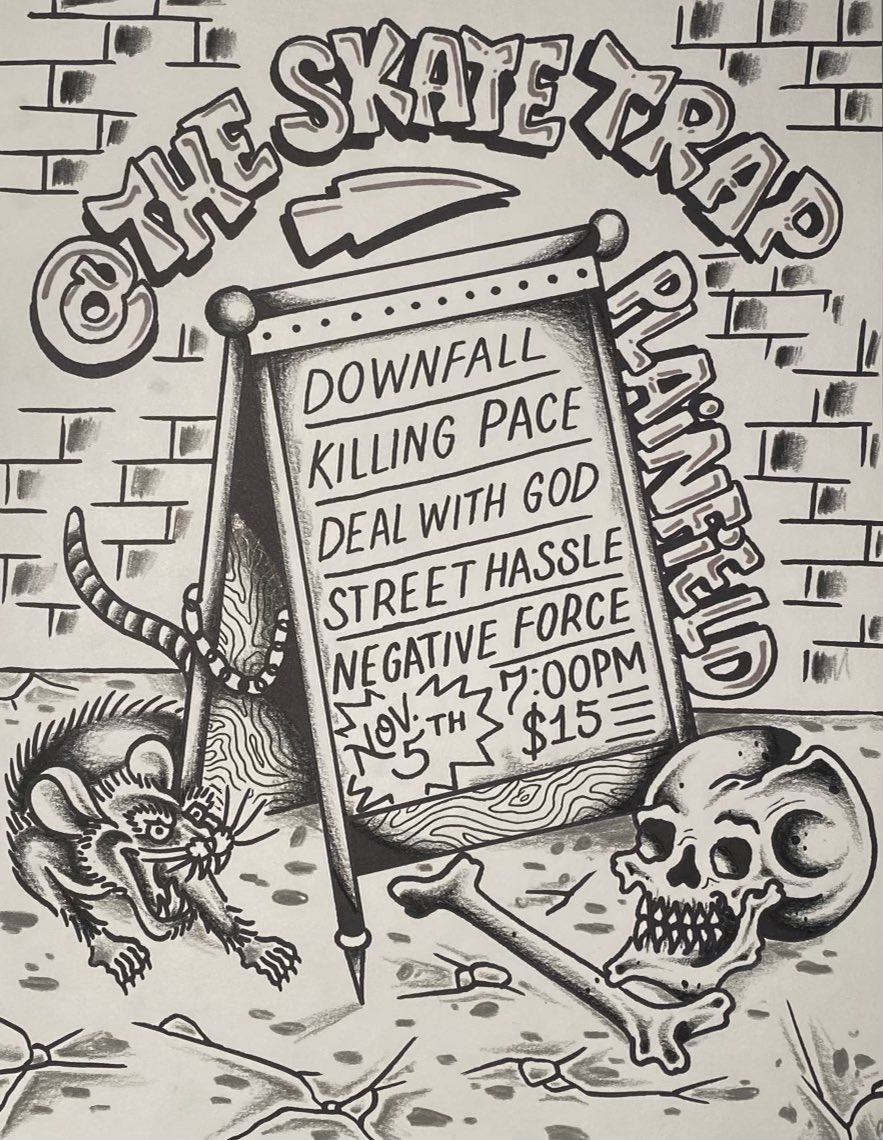 @ THE SKATE TRAP
PLAiNFiELD
DOWNFALL
KILLING PACE
DEAL WITH GOD
STREET HASSLE
NEGATIVE FORCE
NOV. 5TH
7:00PM
$15